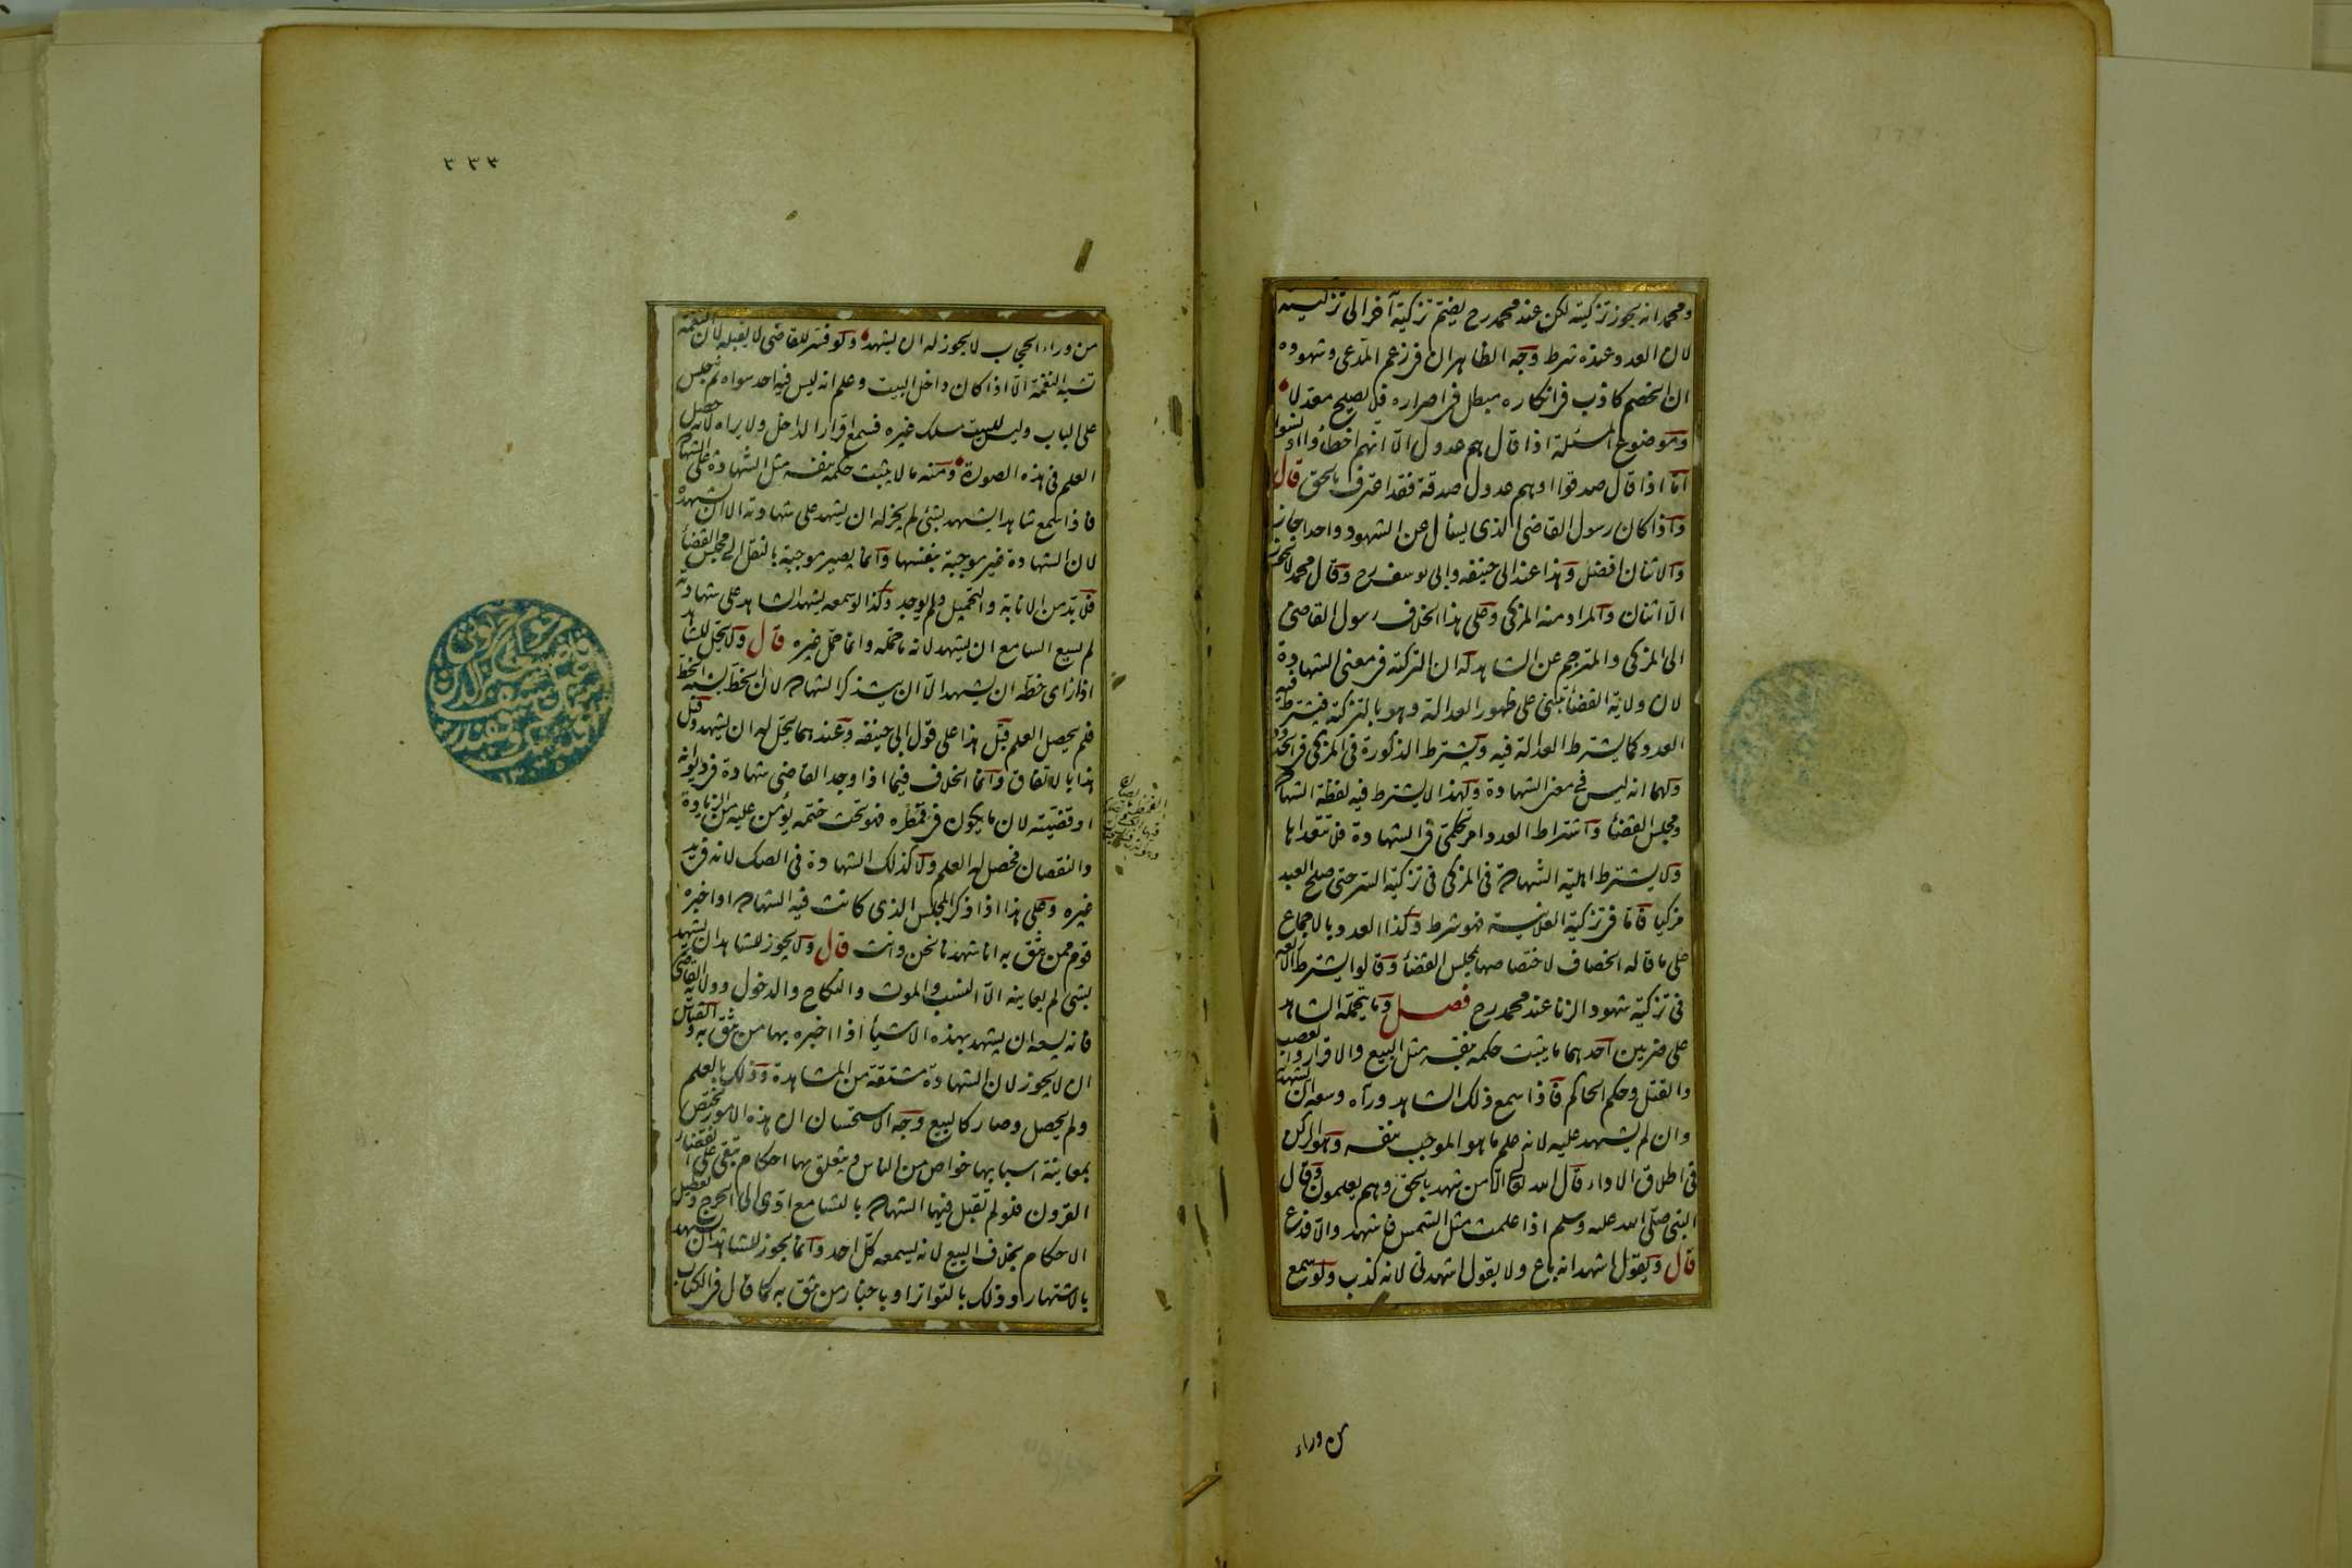 ومحمد انه يجوز تزكيته لكن عند محمد رح يضم تزكية آخر الى تزكيته
لان العدد عنده شرط وجه الظاهر ان فى زعم المدعى وشهوده
ان الخصم كاذب فى انكاره مبطل فى اصراره فلا يصلح معدلا
وموضوع المسئلة اذا قال هم عدول الا انهم اخطأوا او نسوا
اما اذا قال صدقوا او هم عدول صدقة فقد اعترف بالحق قال
واذا كان رسول القاضى الذى يسأل عن الشهود واحدا جاز
والاثنان افضل وهذا عند ابى حنيفه وابى يوسف رح وقال محمد لا يجوز
الا اثنان والمراد منه المزكى وعلى هذا الخلاف رسول القاضى
الى المزكى والمترجم عن الشاهد له ان التزكية فى معنى الشهادة
لان ولاية القضأ تبتنى على ظهور العدالة وهو بالتزكية فيشترط فيه
العدد كما يشترط العدالة فيه ويشترط الذكورة فى المزكى فى الحدود
ولهما انه ليس فى معنى الشهادة ولهذا لا يشترط فيه لفظة الشهادة
ومجلس القضأ واشتراط العدد امر حكمى فى الشهادة فلا تتعداها
ولا يشترط اهلية الشهادة فى المزكى فى تزكية السر حتى صلح العبد
مزكيا فاما فى تزكية العلانية فهو شرط وكذا العدد بالاجماع
على ما قاله الخصاف لاختصاصها بمجلس القضأ وقالوا يشترط الاربعة
فى تزكية شهود الزنا عند محمد رح فصل وما يتحمله الشاهد
على ضربين احدهما ما يثبت حكمه بنفسه مثل البيع والاقرار والغصب
والقتل وحكم الحاكم فاذا سمع ذلك الشاهد ورآه وسعه ان يشهد به
وان لم يشهد عليه لانه علم ما هو الموجب بنفسه وهو الركن
فى اطلاق الاداء قال الله تع الا من شهد بالحق وهم يعلمون وقال
النبى صلى الله عليه وسلم اذا علمت مثل الشمس فاشهد والا فدع
قال ويقول اشهد انه باع ولا يقول اشهدنى لانه كذب ولو سمع
من وراء
٣٣٣
من وراء الحجاب لا يجوز له ان يشهد ولو فسر للقاضى لا يقبله لان النغمة
تشبه النغمة الا اذا كان داخل البيت وعلم انه ليس فيه احد سواه ثم جلس
على الباب وليس للبيت مسلك غيره فسمع اقرار الداخل ولا يراه لانه حصل
العلم فى هذه الصورة ومنه ما لا يثبت حكمه بنفسه مثل الشهادة على الشهادة
فاذا سمع شاهدا يشهد بشئ لم يجز له ان يشهد على شهادته الا ان يشهده
لان الشهادة غير موجبة بنفسها وانما يصير موجبة بالنقل الى مجلس القضأ
فلا بد من الانابة والتحميل ولم يوجد وكذا لو سمعه يشهد الشاهد على شهادته
لم يسع السامع ان يشهد لانه ما حمله وانما حمل غيره قال ولا يحل للشاهد
اذا رأى خطه ان يشهد الا ان يتذكر الشهادة لان الخط يشبه الخط
فلم يحصل العلم قيل هذا على قول ابى حنيفه وعندهما يحل له ان يشهد وقيل
هذا بالاتفاق وانما الخلاف فيما اذا وجد القاضى شهادة فى ديوانه
او قضيته لان ما يكون فى قمطره فهو تحت ختمه يؤمن عليه من الزيادة
والنقصان فحصل له العلم ولا كذلك الشهادة فى الصك لانه فى يد
غيره وعلى هذا اذا ذكر المجلس الذى كانت فيه الشهادة او اخبره
قوم ممن يثق به انا شهدنا نحن وانت قال ولا يجوز للشاهد ان يشهد
بشئ لم يعاينه الا النسب والموت والنكاح والدخول وولاية القاضى
فانه يسعه ان يشهد بهذه الاشيأ اذا اخبره بها من يثق به والقياس
ان لا يجوز لان الشهادة مشتقة من المشاهدة وذلك بالعلم
ولم يحصل وصار كالبيع وجه الاستحسان ان هذه الامور تختص
بمعاينة اسبابها خواص من الناس ويتعلق بها احكام تبقى على انقضاء
القرون فلو لم تقبل فيها الشهادة بالتسامع ادى الى الحرج وتعطيل
الاحكام بخلاف البيع لانه يسمعه كل احد وانما يجوز للشاهد ان يشهد
بالاشتهار وذلك بالتواتر او باخبار من يثق به كما قال فى الكتاب